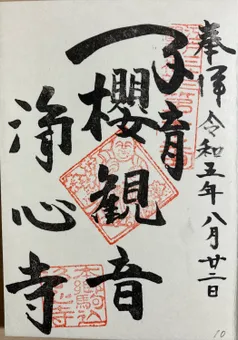 奉拝
令和五年八月廿二日
子育
櫻観音
浄心寺
10